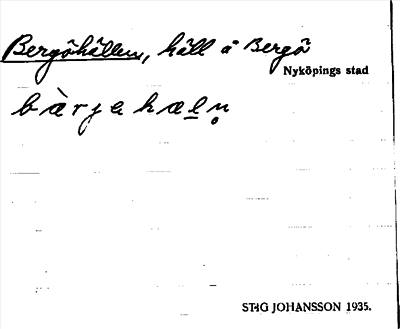 Bergöhällen, häll å Bergö
Nyköpings stad
bàrjahæln̥
STIG JOHANSSON 1935.